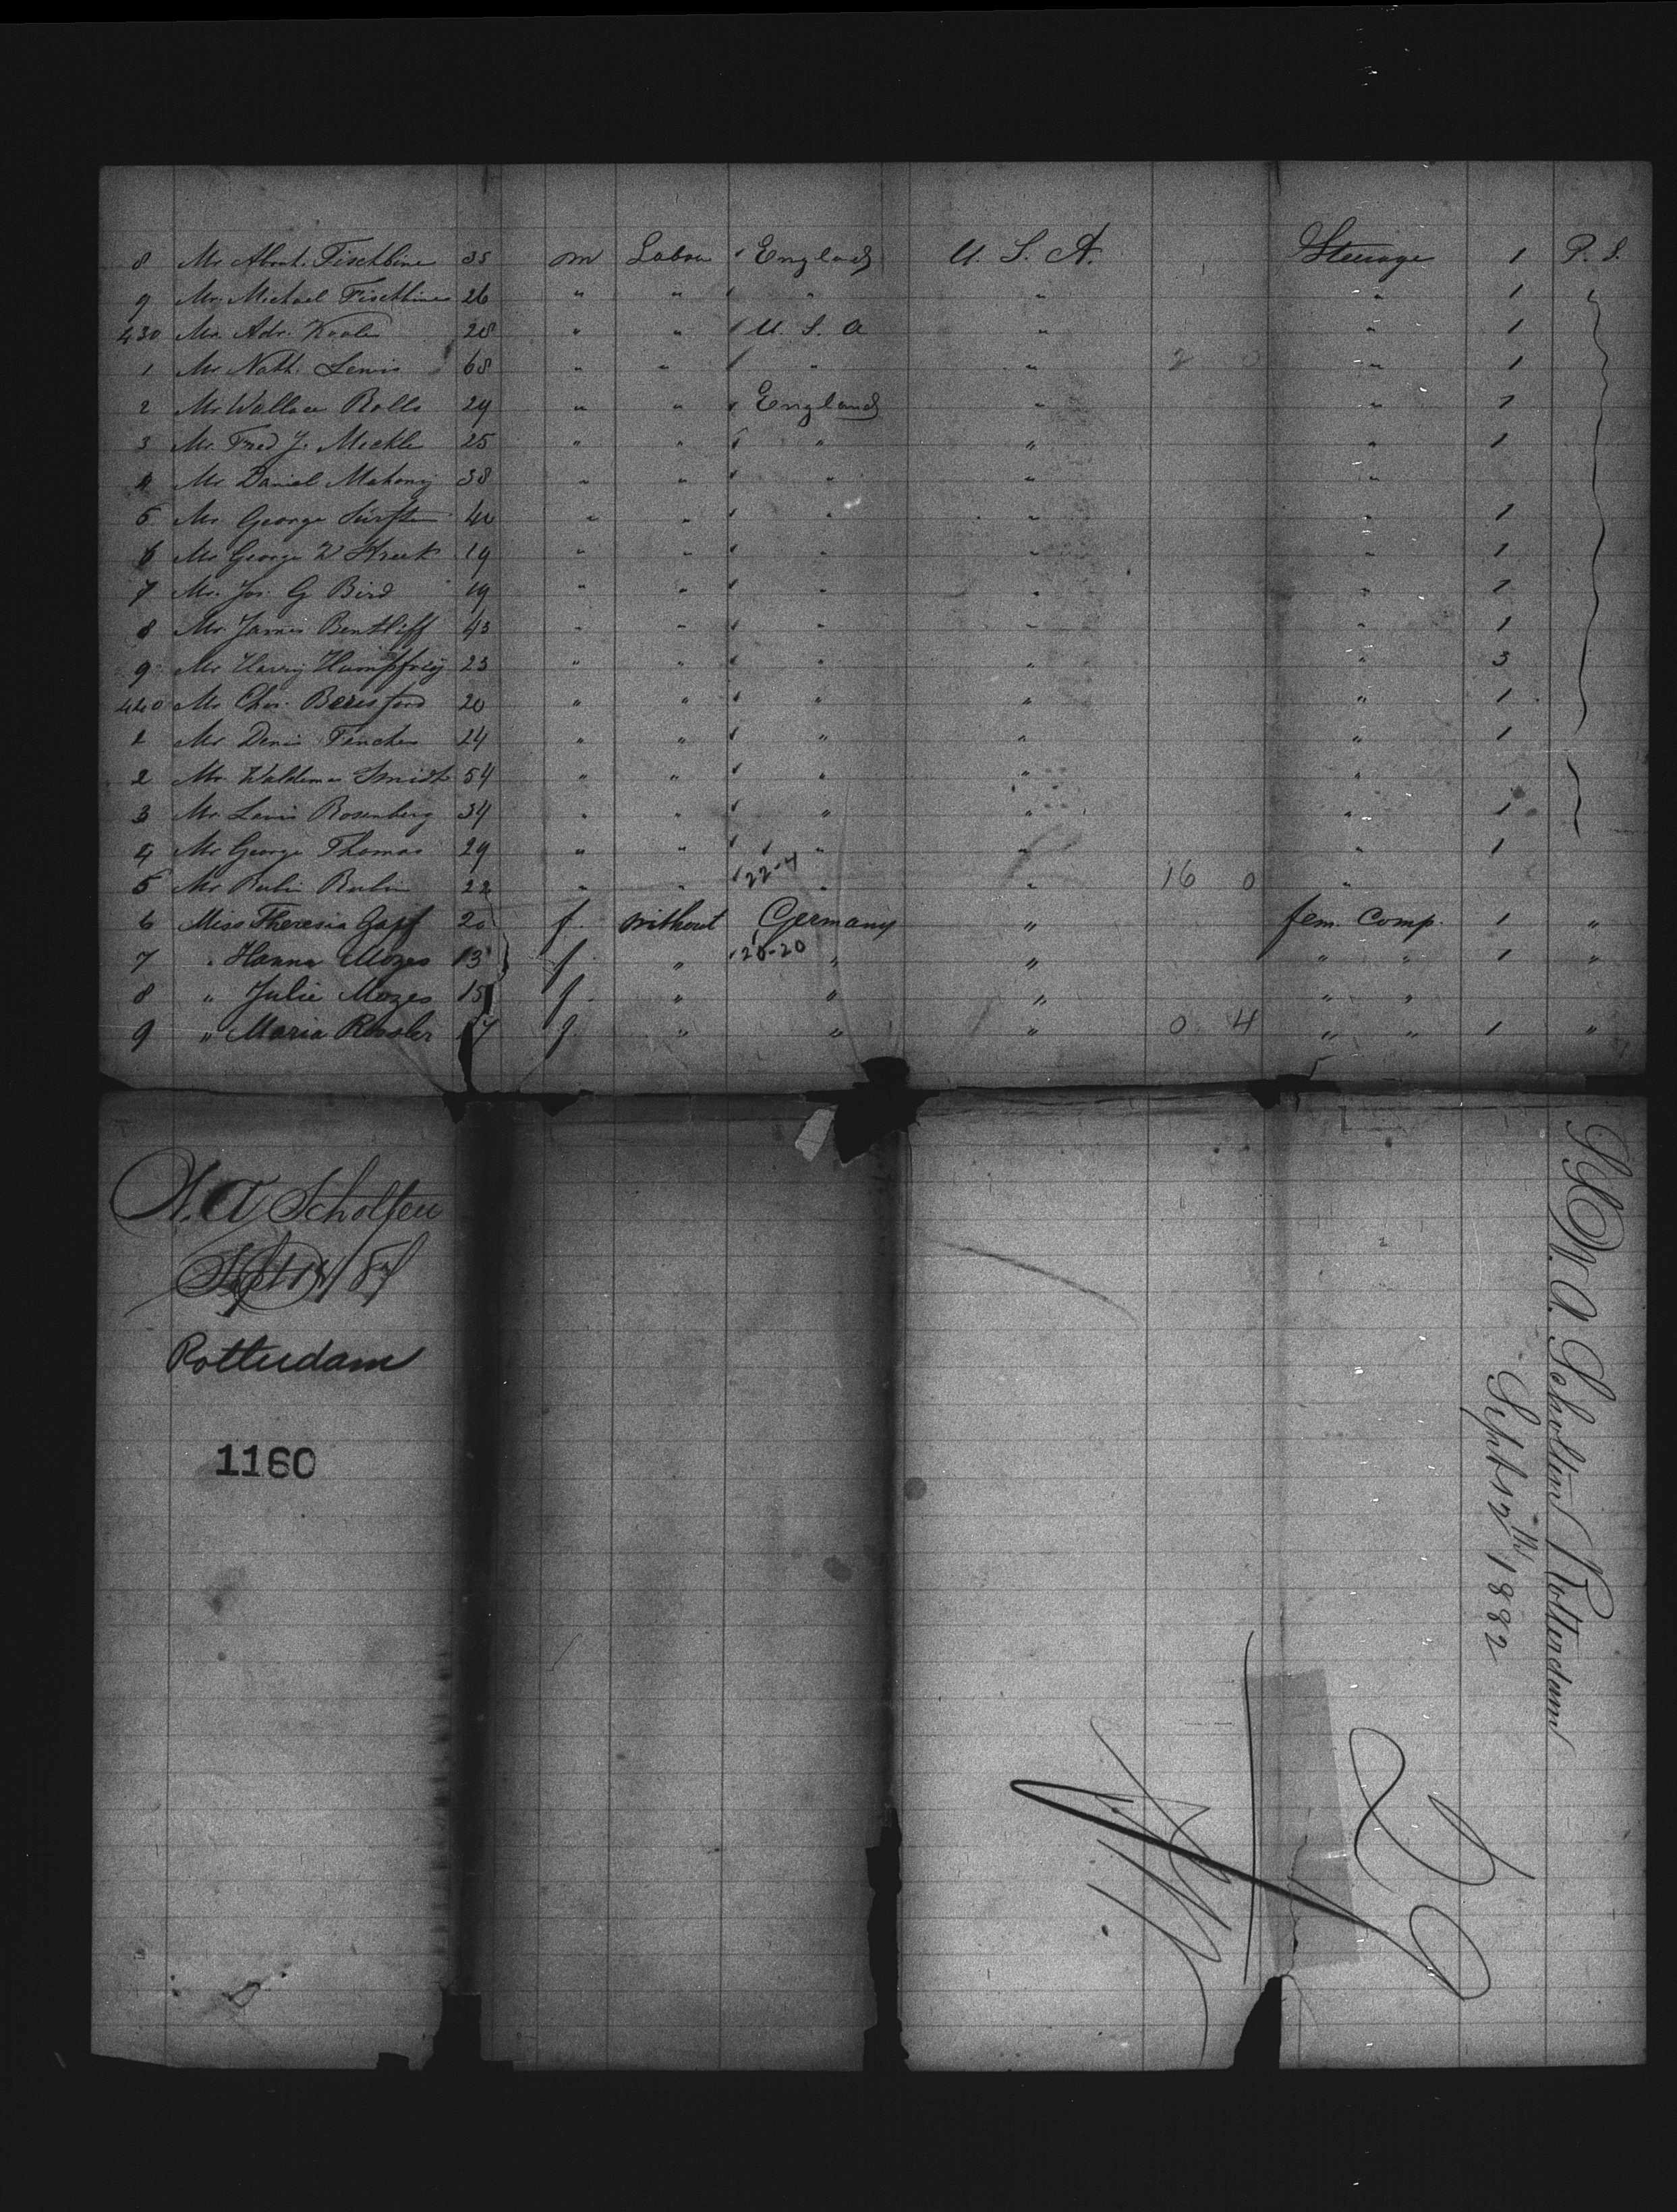 8 Mr. Abrah. Fischbine 35 m Labor England U. S. A. Steerage 1 P. S.
9 Mr. Michael Fischbine 26 " " " " " 1
430 Mr. Adr. 28 " " U. S. A " " 1
1 Mr. Nath. Lewis 68 " " " " 2 0 " 1
2 Mr. Wallace Rolls 29 " " England " " 1
3 Mr. Fred J. Meckle 25 " " " " " 1
4 Mr. Daniel Mahony 38 " " " " "
5 Mr. George 40 " " " " " 1
6 Mr. George W Streek 19 " " " " " 1
7 Mr. Jos. G Bird 19 " " " " " 1
8 Mr. James Bentliff 43 " " " " " 1
9 Mr. Harry Humpfrey 23 " " " " " 3
440 Mr. Chs. Beresford 20 " " " " " 1
1 Mr. Denis Fincher 24 " " " " " 1
2 Mr. Waldemar Smidt 54 " " " " "
3 Mr. Lewis Rosenberg 34 " " " " " 1
4 Mr. George Thomas 29 " " " " " 1
5 Mr. Rubin Rubin 22 " " 22-4 " " 16 0 "
6 Miss Theresia Gapf 20 f. without Germany " fem. Comp. 1 "
7 " Hanna Mozes 13 f. " 20-20 " " " " 1 "
8 " Julie Mozes 15 f. " " " " "
9 " Maria Ressler 17 f. " " " 0 4 " " 1 "
W. A Scholten
Sept 14/87
Rotterdam
1160
SS W. A. Scholten Rotterdam
Sept 12th 1882